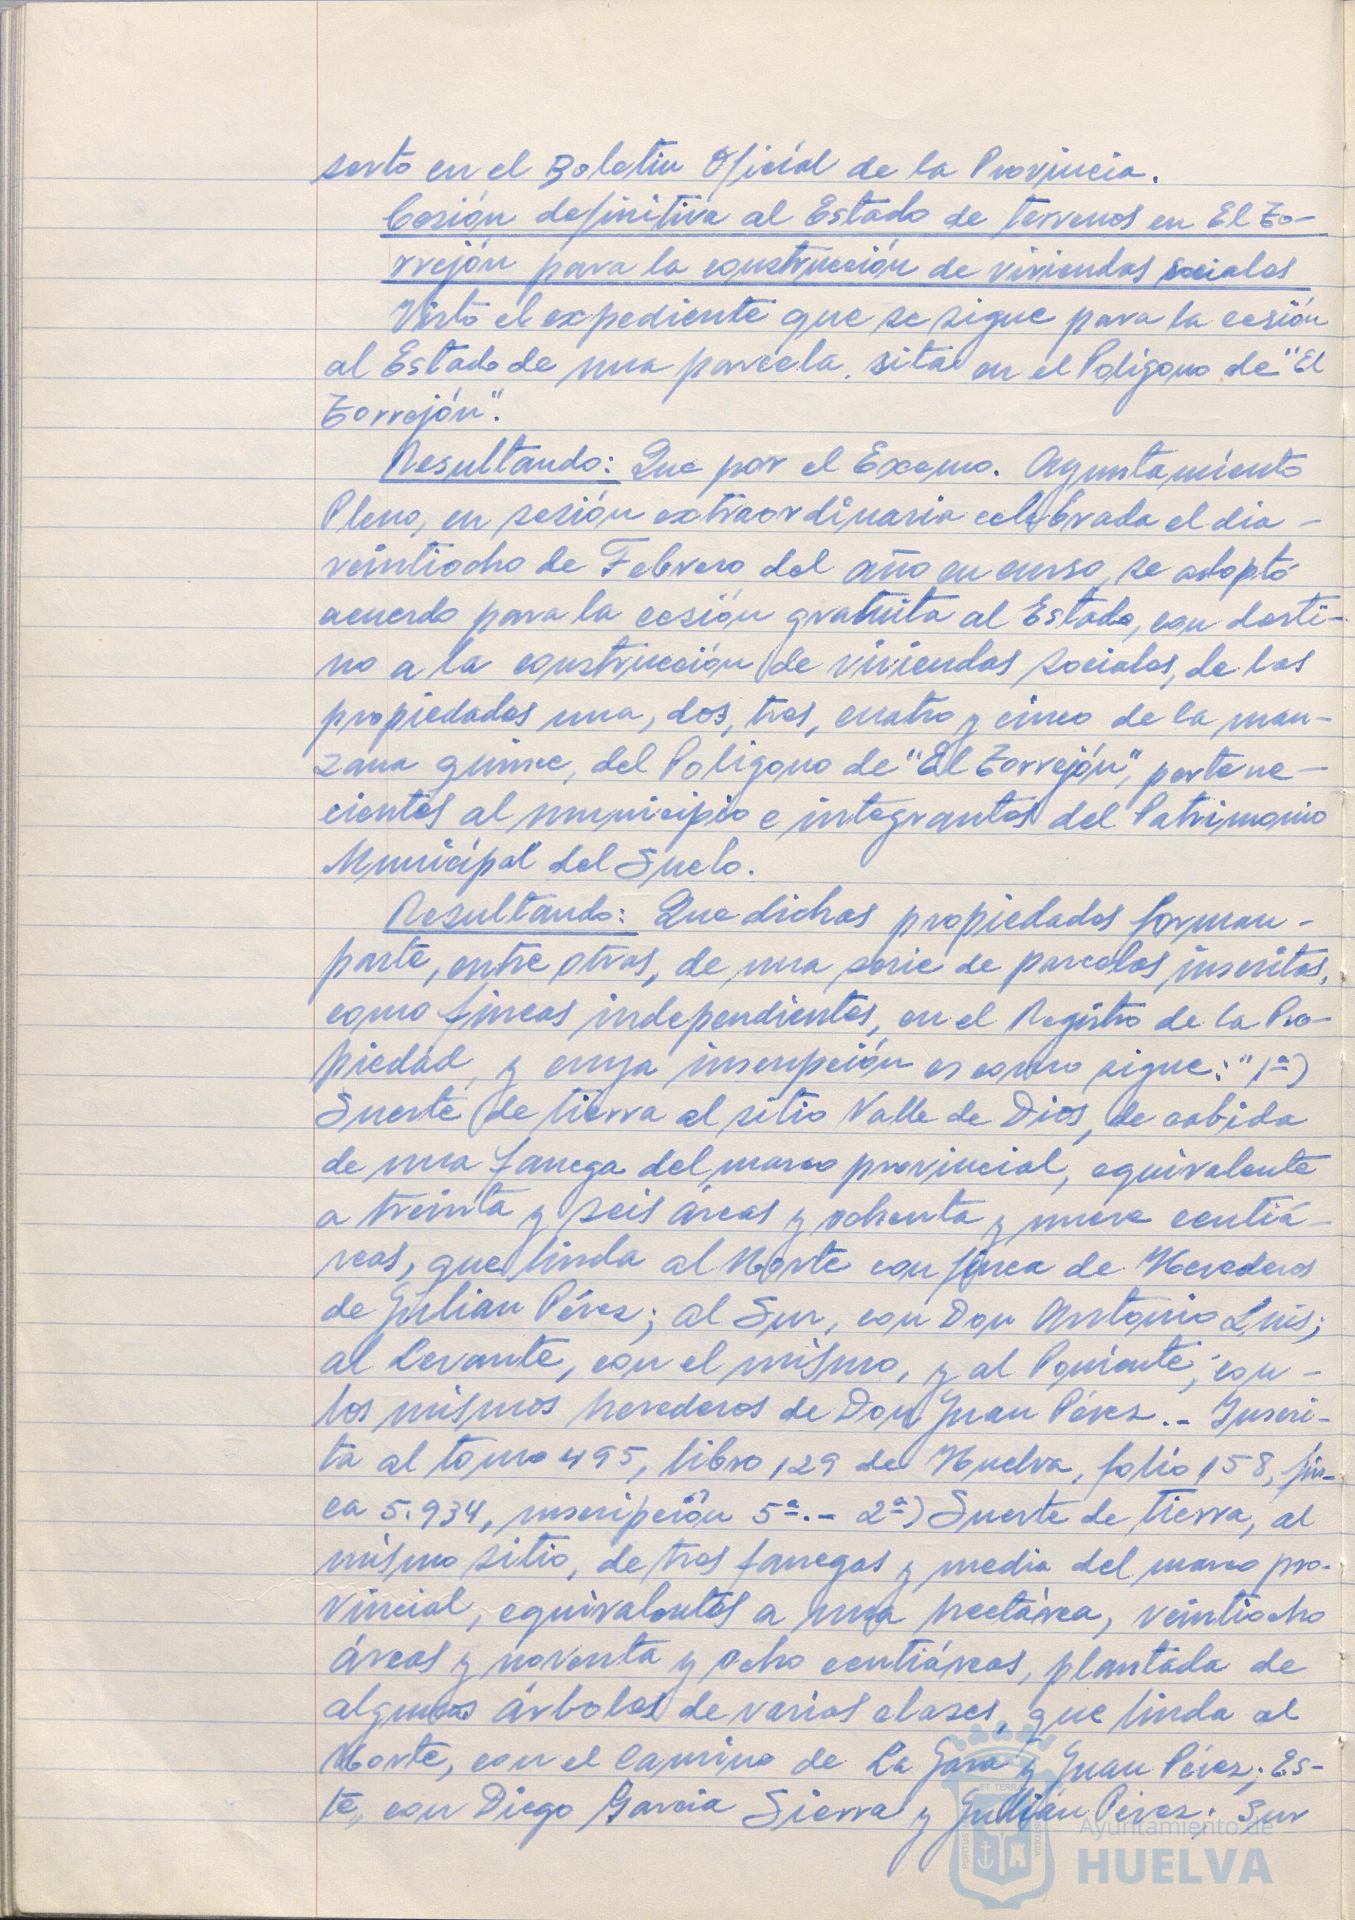 serto en el Boletin Oficial de la Provincia.
Cesión definitiva al Estado de terrenos en El To-
rrejón para la construcción de viviendas sociales
Visto el expediente que se sigue para la cesión
al Estado de una parcela sita en el Polígono de "El
Torrejón".
Resultando: Que por el Excmo. Ayuntamiento
Pleno, en sesión extraordinaria celebrada el dia -
veintiocho de Febrero del año en curso, se adoptó
acuerdo para la cesión gratuita al Estado, con desti-
no a la construcción de viviendas sociales, de las
propiedades una, dos, tres, cuatro y cinco de la man-
zana quince, del Polígono de "El Torrejón", pertene-
cientes al municipio e integrantes del Patrimonio
Municipal del Suelo.
Resultando: Que dichas propiedades forman -
parte, entre otras, de una serie de parcelas inscritas,
como fincas independientes, en el Registro de la Pro-
piedad, y cuya inscripción es como sigue: "1ª)
Suerte de tierra al sitio Valle de Dios, de cabida
de una fanega del marco provincial, equivalente
a treinta y seis áreas y ochenta y nueve centiá-
reas, que linda al Norte con finca de Herederos
de Julian Pérez; al Sur, con Don Antonio Luis;
al Levante, con el mismo, y al Poniente, con -
los mismos herederos de Don Juan Pérez.- Inscri-
ta al tomo 495, libro 129 de Huelva, folio 158, fin-
ca 5.934, inscripción 5ª.- 2ª) Suerte de tierra, al
mismo sitio, de tres fanegas y media del marco pro-
vincial, equivalentes a una hectárea, veintiocho
áreas y noventa y ocho centiáreas, plantada de
algunos árboles de varias clases, que linda al
Norte, con el Camino de La Jara y Juan Pérez; Es-
te, con Diego Garcia Sierra y Julián Pérez; Sur
Ayuntamiento de
HUELVA